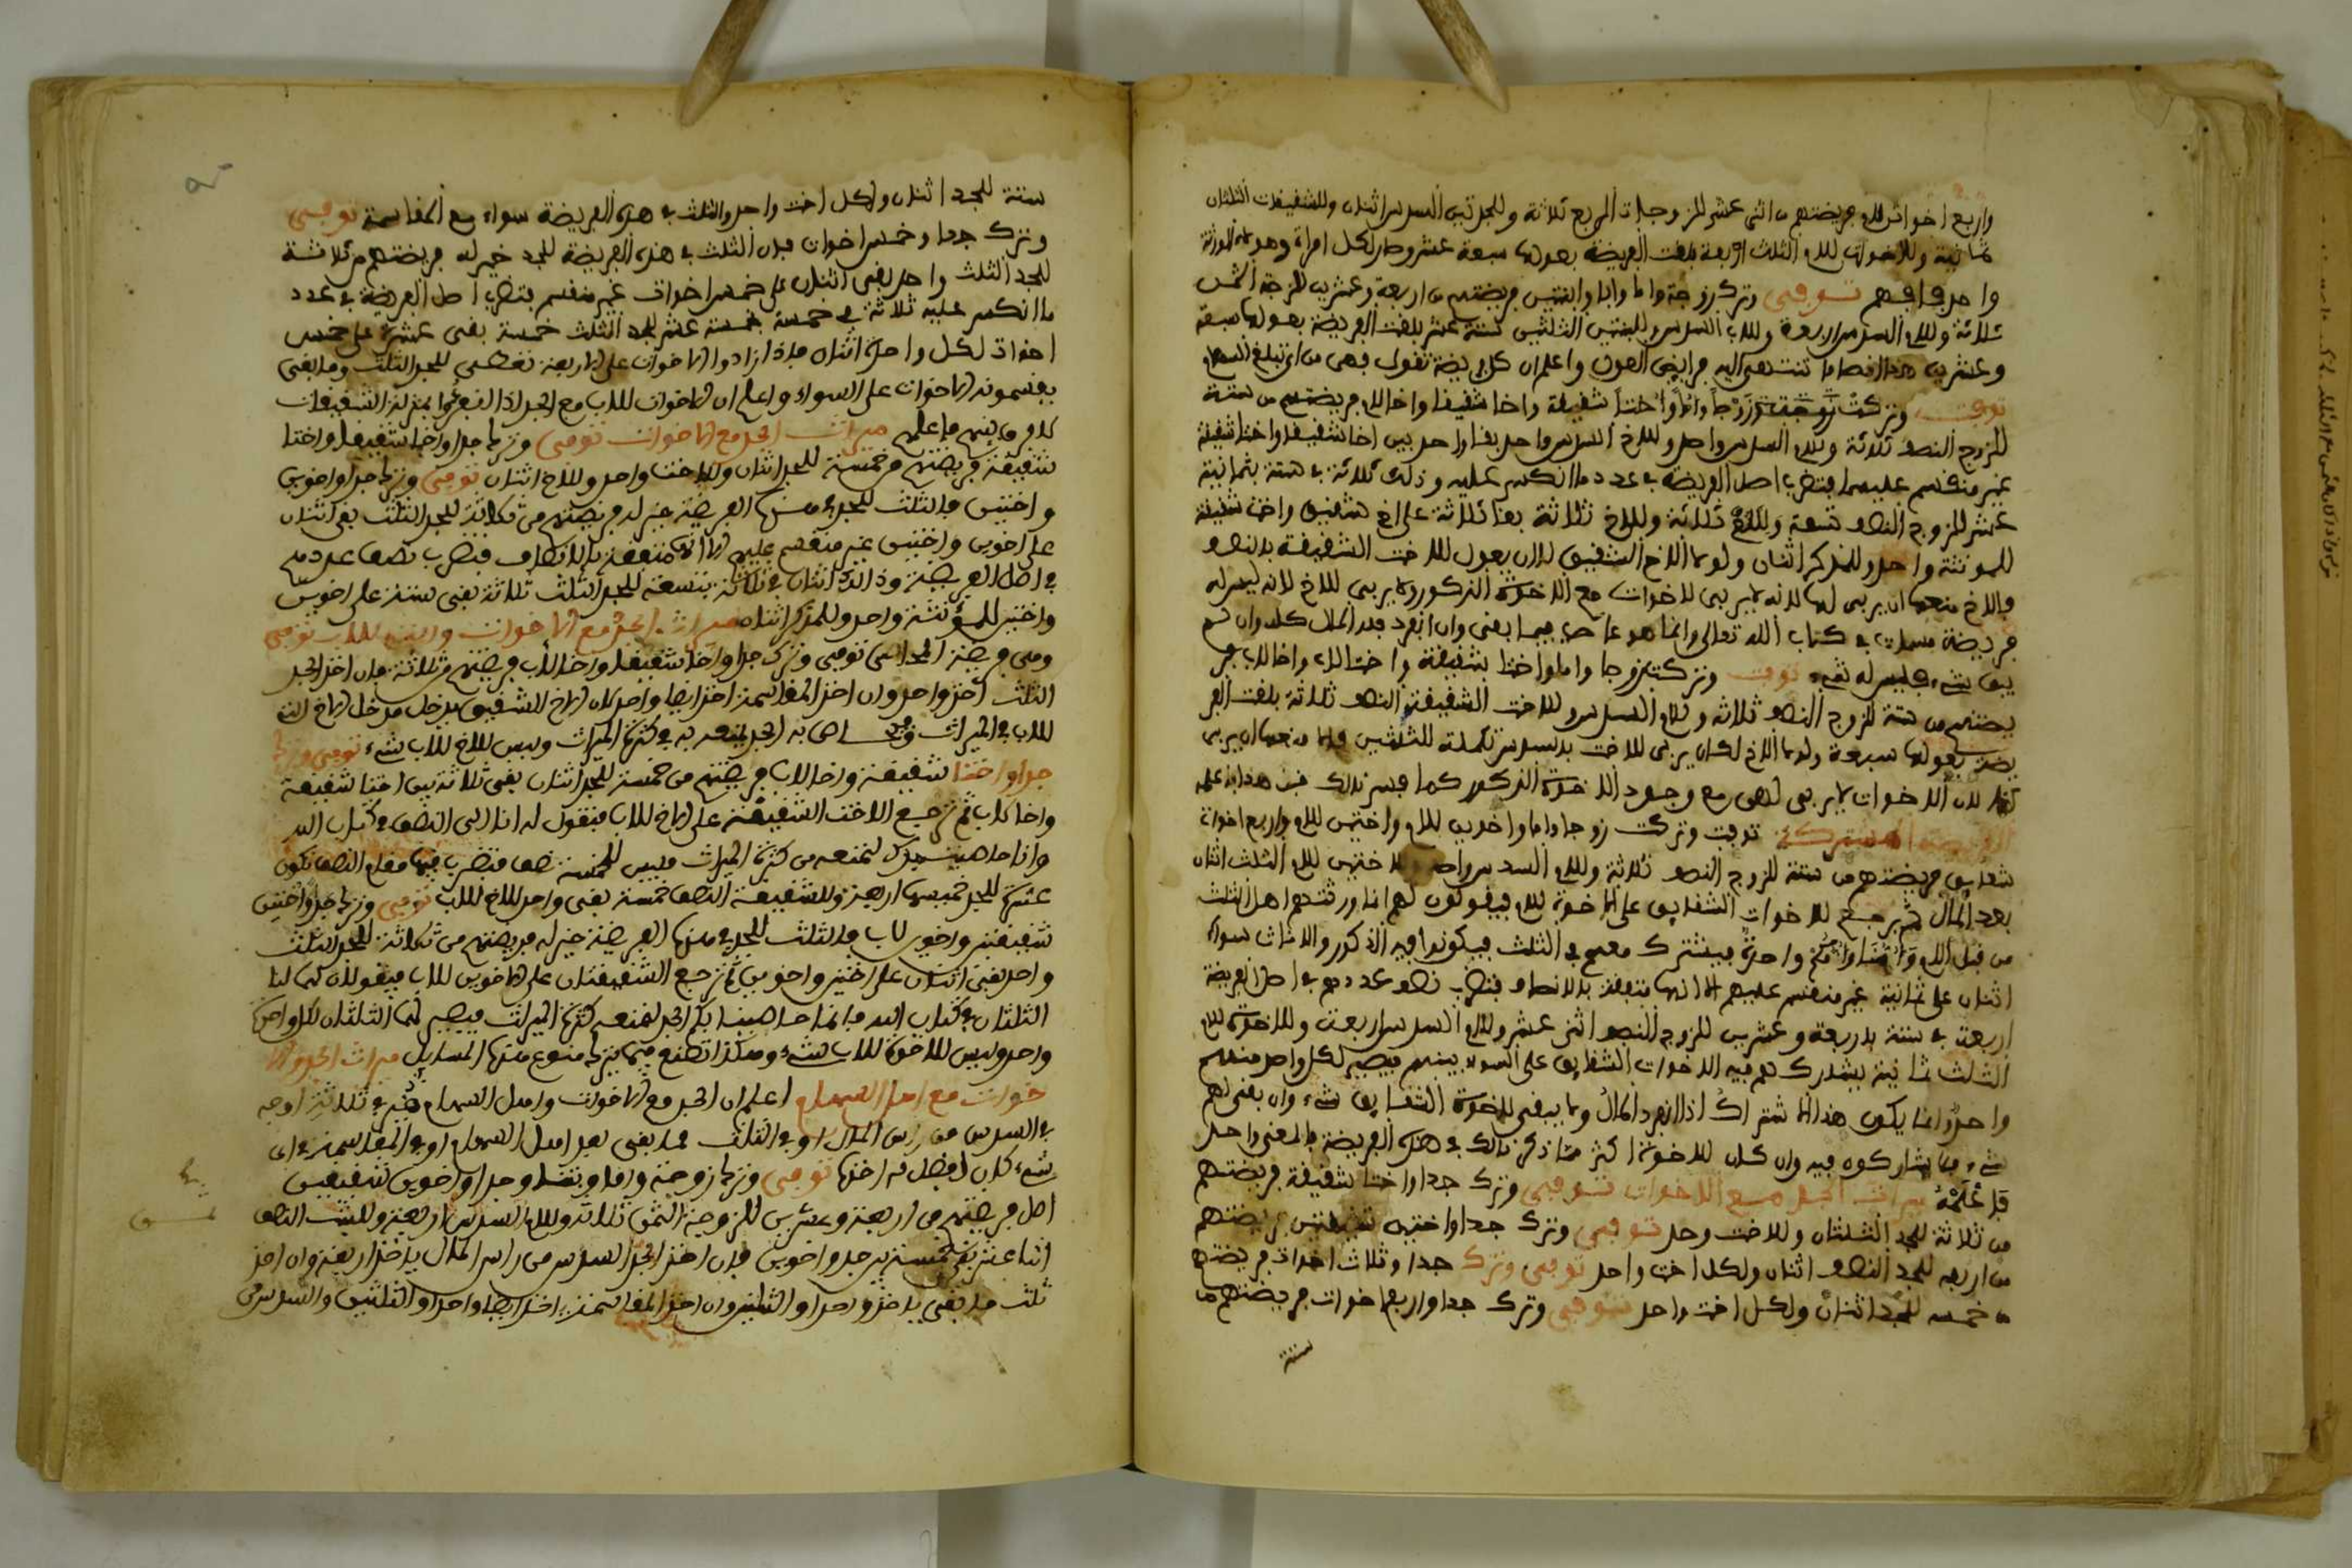 واربع اخوات للام فريضتهم من اثنى عشر للزوجات الربع ثلاثة وللجدتين السدس اثنان وللشقيقات الثلثان
ثمانية وللاخوات للام الثلث اربعة بلغت الفريضة بعولها سبعة عشر وصار لكل امراة وهو من الورثة
واحد فافهم توفي وترك زوجة واما وابا وابنتين فريضتهم من اربعة وعشرين للزوجة الثمن
ثلاثة وللام السدس اربعة وللاب السدس وللبنتين الثلثين ستة عشر بلغت الفريضة بعولها سبعة
وعشرين هذا اقصا ما تنتهى اليه فرايض العول واعلم ان كل فريضة تعول فهى من اين تبلغ السهام
توفت وتركت زوجا واما واختا شقيقة واخا شقيقا واخا للام فريضتهم من ستة
للزوج النصف ثلاثة وللام السدس واحد وللاخ السدس واحد بقا واحد بين اخا شقيقا واختا شقيقة
غير منقسم عليهما فتضرب اصل الفريضة في عدد ما انكسر عليه وذلك ثلاثة في ستة بثمانية
عشر للزوج النصف تسعة وللام ثلاثة وللاخ ثلاثة بقا ثلاثة على اخ شقيق واخت شقيقة
للمونثة واحد وللمذكر اثنان ولولا الاخ الشقيق لكان يعول للاخت الشقيقة بالنصف
والاخ منعها ان يربى لها لانه لا يربى للاخوات مع الاخوة الذكور ولا يربى للاخ لانه ليس له
فريضة مسماة في كتاب الله تعالى وانما هو عاصب فيما بقى وان انفرد فله المال كله وان لم
يبق شيء فليس له شيء توفت وتركت زوجا واما واختا شقيقة واختا لاب واخا لاب فر
يضتهم من ستة للزوج النصف ثلاثة وللام السدس وللاخت الشقيقة النصف ثلاثة بلغت الفر
يضة بعولها سبعة ولولا الاخ لكان يربى للاخت بالسدس تكملة للثلثين ولما منعها ان يربى
لها لان الاخوات لا يربى لهن مع وجود الاخوة الذكور كما فسر ذلك فبت هذا واعلمه
الفريضة المشتركة توفت وتركت زوجا واما واخوين للام واختين للام واربع اخوات
شقايق فريضتهم من ستة للزوج النصف ثلاثة وللام السدس واحد وللاختين للام الثلث اثنان
بعد المال ثم يرجع للاخوات الشقايق على الاخوة للام فيقولون لهم انما ورثتم اهل الثلث
من قبل الام وامنا وامكم واحدة فيشترك معهم في الثلث فيكونوا فيه الذكور والاناث سواء
اثنان على ثمانية غير منقسم عليهم الا انها متفقة بالانصاف فتضرب نصف عددهم في اصل الفريضة
اربعة في ستة باربعة وعشرين للزوج النصف اثنى عشر وللام السدس اربعة وللاخوة للام
الثلث ثمانية يشارك هم فيه الاخوات الشقايق على السواء بينهم فيصير لكل واحد منهم
واحد وانما يكون هذا الاشتراك اذا انفرد المال ولا يبقى للاخوة الشقايق شيء وان بقى لهم
شيء فلا يشاركوه فيه وان كان للاخوة اكثر مما ذكر ذلك في هذه الفريضة والمعنى واحد
فاعلمه ميراث الجد مع الاخوات توفي وترك جدا واختا شقيقة فريضتهم
من ثلاثة للجد الثلثان وللاخت وحد توفي وترك جدا واختين شقيقتين فريضتهم
من اربعه للجد النصف اثنان ولكل اخت واحد توفي وترك جدا وثلاث اخوات فريضتهم
من خمسه للجد اثنان ولكل اخت واحد توفي وترك جدا واربع اخوات فريضتهم من
ستة
ستة للجد اثنان ولكل اخت واحد والثلث في هذه الفريضة سواء مع المقاسمة توفى
وترك جدا وخمس اخوات فان الثلث في هذه الفريضة للجد خير له فريضتهم من ثلاثة
للجد الثلث واحد بقى اثنان على خمس اخوات غير منقسم فتضرب اصل الفريضة في عدد
ما انكسر عليه ثلاثة في خمسة بخمسة عشر للجد الثلث خمسة بقى عشرة على خمس
اخوات لكل واحدة اثنان فاذا زادوا الاخوات على الاربعة تعطى للجد الثلث وما بقى
يقسمونه الاخوات على السواء واعلم ان الاخوات للاب مع الجد اذا انفردوا بمنزلة الشقيقات
كلا فرق بينهم فاعلم ميراث الجد مع الاخوات توفى وترك جدا واخا شقيقا واختا
شقيقة فريضتهم من خمسة للجد اثنان وللاخت واحد وللاخ اثنان توفى وترك جدا واخوين
واختين فالثلث للجد في هذه الفريضة خير له فريضتهم من ثلاثة للجد الثلث بقى اثنان
على اخوين واختين غير منقسم عليهم الا انها متفقة بالانصاف فتضرب نصف عددهم
في اصل الفريضة وذلك اثنان في ثلاثة بتسعة للجد الثلث ثلاثة بقى ستة على اخوين
واختين للمؤنثة واحد وللمذكر اثنان ميراث الجد مع الاخوات واخوة للاب توفى
وهى فريضة المعادة توفى وترك جدا واخا شقيقا واخا لاب فريضتهم من ثلاثة فان اخذ الجد
الثلث اخذ واحد وان اخذ المقاسمة اخذ ايضا واحد لان الاخ الشقيق يدخل مدخل الاخ الذ
للاب في الميراث وحاسا به الجد ليمنعه به في كثرة الميراث وليس للاخ للاب شيء توفى وترك
جدا واختا شقيقة واخا لاب فريضتهم من خمسة للجد اثنان بقى ثلاثة بين اختا شقيقة
واخا لاب ثم ترجع الاخت الشقيقة على الاخ للاب فتقول له انا لى النصف في كتاب الله
وانا حاسبت بك لنمنعه من كثرة الميراث فليس للخمسة نصف فتضرب فيها مقام النصف تكون
عشرة للجد خمسها اربعة وللشقيقة النصف خمسة بقى واحد للاخ للاب توفى وترك جدا واختين
شقيقتين واخوين لاب فالثلث للجد في هذه الفريضة خير له فريضتهم من ثلاثة للجد الثلث
واحد بقى اثنان على اختين واخوين ثم ترجع الشقيقتان على الاخوين للاب فيقولان لهما لنا
الثلثان في كتاب الله فانما حاسبنا بكم الجد لنمنعه كثرة الميراث فيصير لهما الثلثان لكل واحدة
واحد وليس للاخوة للاب شيء وهكذا تصنع فيما يترك منوع هذه المسايل ميراث الجد والا
خوات مع اهل السهام اعلم ان الجد مع الاخوات واهل السهام هو في ثلاثة اوجه
في السدس من راس المال او في الثلث مما بقى بعد اهل السهام او في المقاسمة في اى
شيء كان افضل له اخذها توفى وترك زوجة واما وبنتا وجدا واخوين شقيقين
اصل فريضتهم من اربعة وعشرين للزوجة الثمن ثلاثة وللام السدس اربعة وللبنت النصف
اثنا عشر بقى خمسة بين جد واخوين فان اخذ الجد السدس من راس المال ياخذ اربعة وان اخذ
ثلث ما بقى ياخذ واحد او الثلثين وان اخذ المقاسمة اخذ ايضا واحد او الثلثين والسدس من